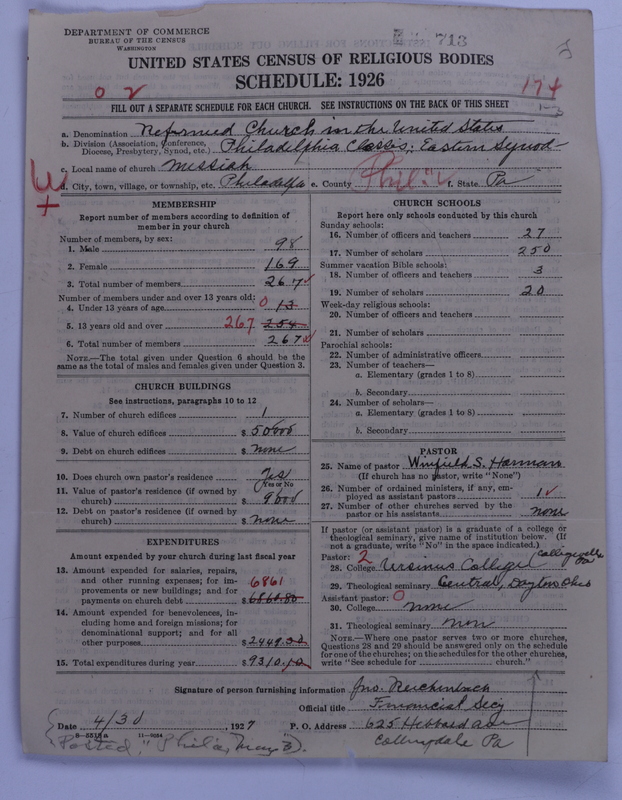 DEPARTMENT OF COMMERCE
BUREAU OF THE CENSUS
WASHINGTON
713
UNITED STATES CENSUS OF RELIGIOUS BODIES
SCHEDULE: 1926
0 2
174
1-3
FILL OUT A SEPARATE SCHEDULE FOR EACH CHURCH. SEE INSTRUCTIONS ON THE BACK OF THIS SHEET
a. Denomination Reformed Church in the United States
b. Division (Association, Conference, Diocese, Presbytery, Synod, etc.) Philadelphia Classis; Eastern Synod
c. Local name of church Messiah
d. City, town, village, or township, etc. Philadelfa e. County Phil'a f. State Pa
MEMBERSHIP
Report number of members according to definition of
member in your church
Number of members, by sex:
1. Male 98
2. Female 169
3. Total number of members 267
Number of members under and over 13 years old:
4. Under 13 years of age 0 13
5. 13 years old and over 267 254
6. Total number of members 267
NOTE.—The total given under Question 6 should be the
same as the total of males and females given under Question 3.
CHURCH BUILDINGS
See instructions, paragraphs 10 to 12
7. Number of church edifices 1
8. Value of church edifices $ 50000
9. Debt on church edifices $ None
10. Does church own pastor's residence? Yes
(Yes or No)
11. Value of pastor's residence (if owned by
church) $ 9000
12. Debt on pastor's residence (if owned by
church) $ None
EXPENDITURES
Amount expended by your church during last fiscal year
13. Amount expended for salaries, repairs,
and other running expenses; for im-
provements or new buildings; and for 6861
payments on church debt $ 6860.80
14. Amount expended for benevolences, in-
cluding home and foreign missions; for
denominational support; and for all
other purposes $ 2449.30
15. Total expenditures during year $ 9310.10
CHURCH SCHOOLS
Report here only schools conducted by this church
Sunday schools:
16. Number of officers and teachers 27
17. Number of scholars 250
Summer vacation Bible schools:
18. Number of officers and teachers 3
19. Number of scholars 20
Week-day religious schools:
20. Number of officers and teachers
21. Number of scholars
Parochial schools:
22. Number of administrative officers
23. Number of teachers—
a. Elementary (grades 1 to 8)
b. Secondary
24. Number of scholars—
a. Elementary (grades 1 to 8)
b. Secondary
PASTOR
25. Name of pastor Winfield S. Harman
(If church has no pastor, write "None")
26. Number of ordained ministers, if any, em-
ployed as assistant pastors 1
27. Number of other churches served by the
pastor or his assistants none
If pastor (or assistant pastor) is a graduate of a college or
theological seminary, give name of institution below. (If
not a graduate, write "No" in the space indicated.)
Pastor: 2
28. College Ursinus College Collegeville Pa
29. Theological seminary Central, Dayton Ohio
Assistant pastor: 0
30. College none
31. Theological seminary non
NOTE.—Where one pastor serves two or more churches,
Questions 28 and 29 should be answered only on the schedule
for one of the churches; on the schedules for the other churches,
write "See schedule for church."
Signature of person furnishing information Jno. Reichenbach
Official title Financial Secy
Date 4/30 1927 P. O. Address 625 Hebbard Ave
Collingdale Pa
8-551Ba 11-9054
Posted, "Phila,